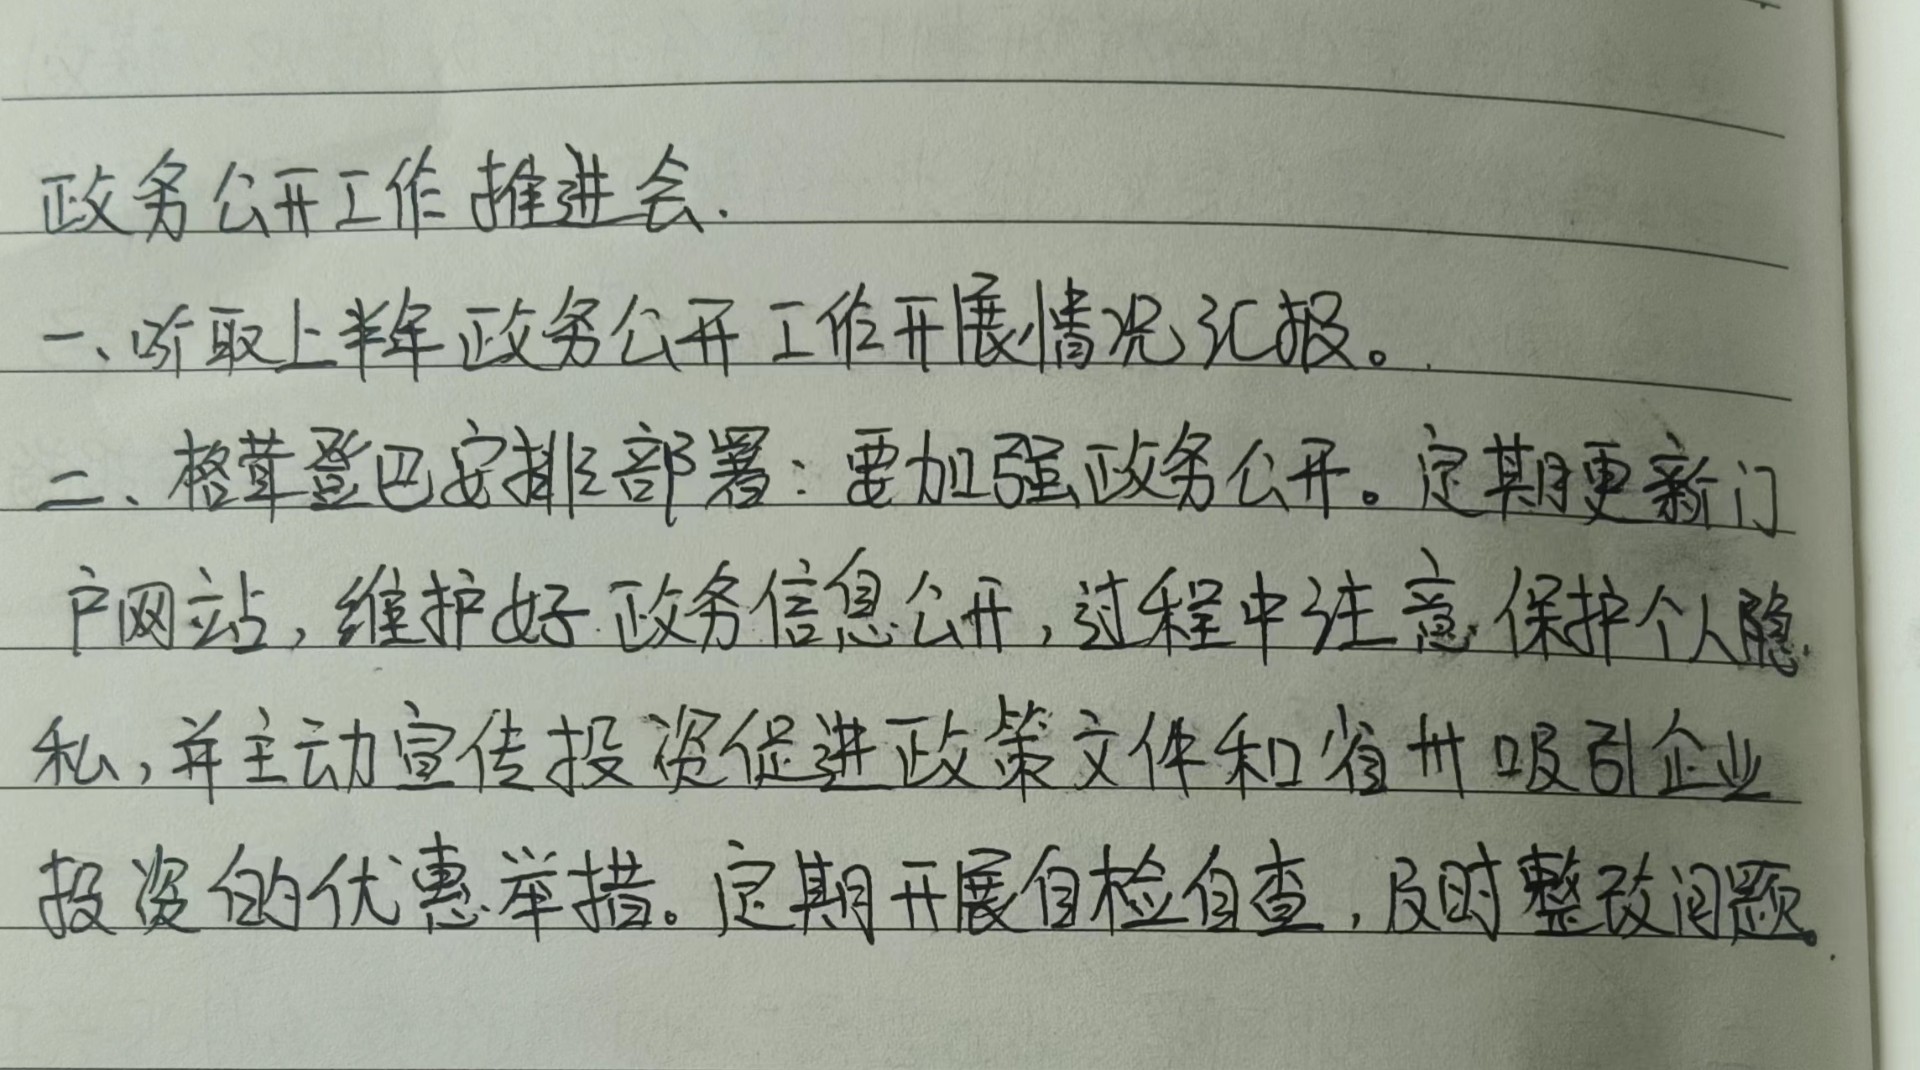 政务公开工作推进会.
一、听取上半年政务公开工作开展情况汇报。
二、格茸登巴安排部署：要加强政务公开。定期更新门
户网站，维护好政务信息公开，过程中注意保护个人隐
私，并主动宣传投资促进政策文件和省州吸引企业
投资的优惠举措。定期开展自检自查，及时整改问题。